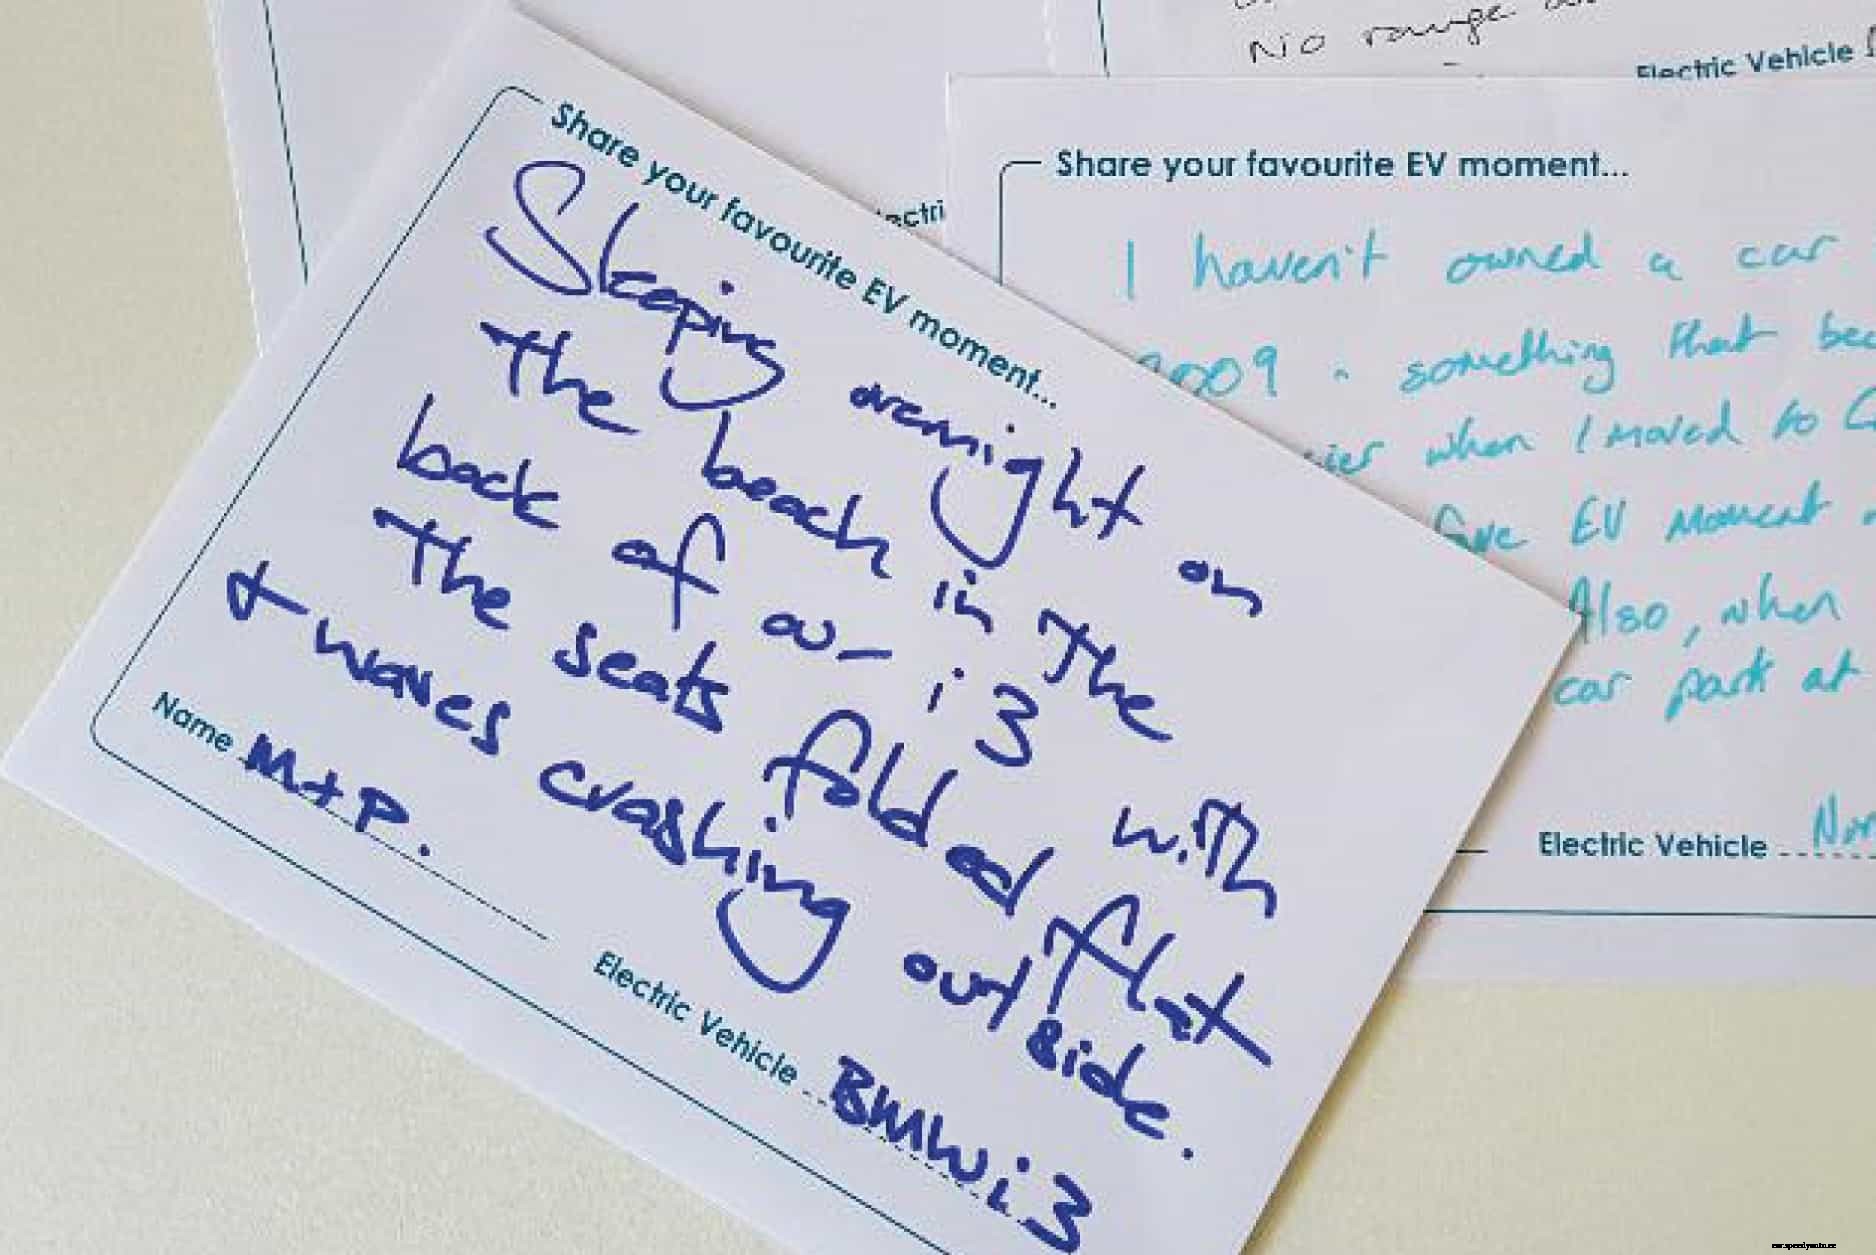 No range
Electric Vehicle
Share your favourite EV moment...
Sleeping overnight on
the beach in the
back of our i3 with
the seats folded flat
& waves crashing outside.
Name M+P.
Electric Vehicle BMW i3
Share your favourite EV moment...
I haven't owned a car
2009 - something that
when I moved to
EV moment
Also, when
car park at
Electric Vehicle